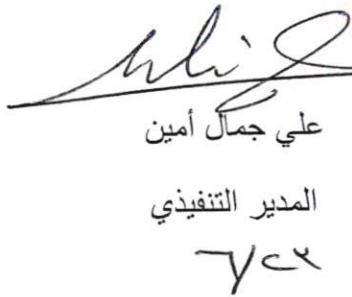 علي جمال أمين
المدير التنفيذي
٦/٢٣